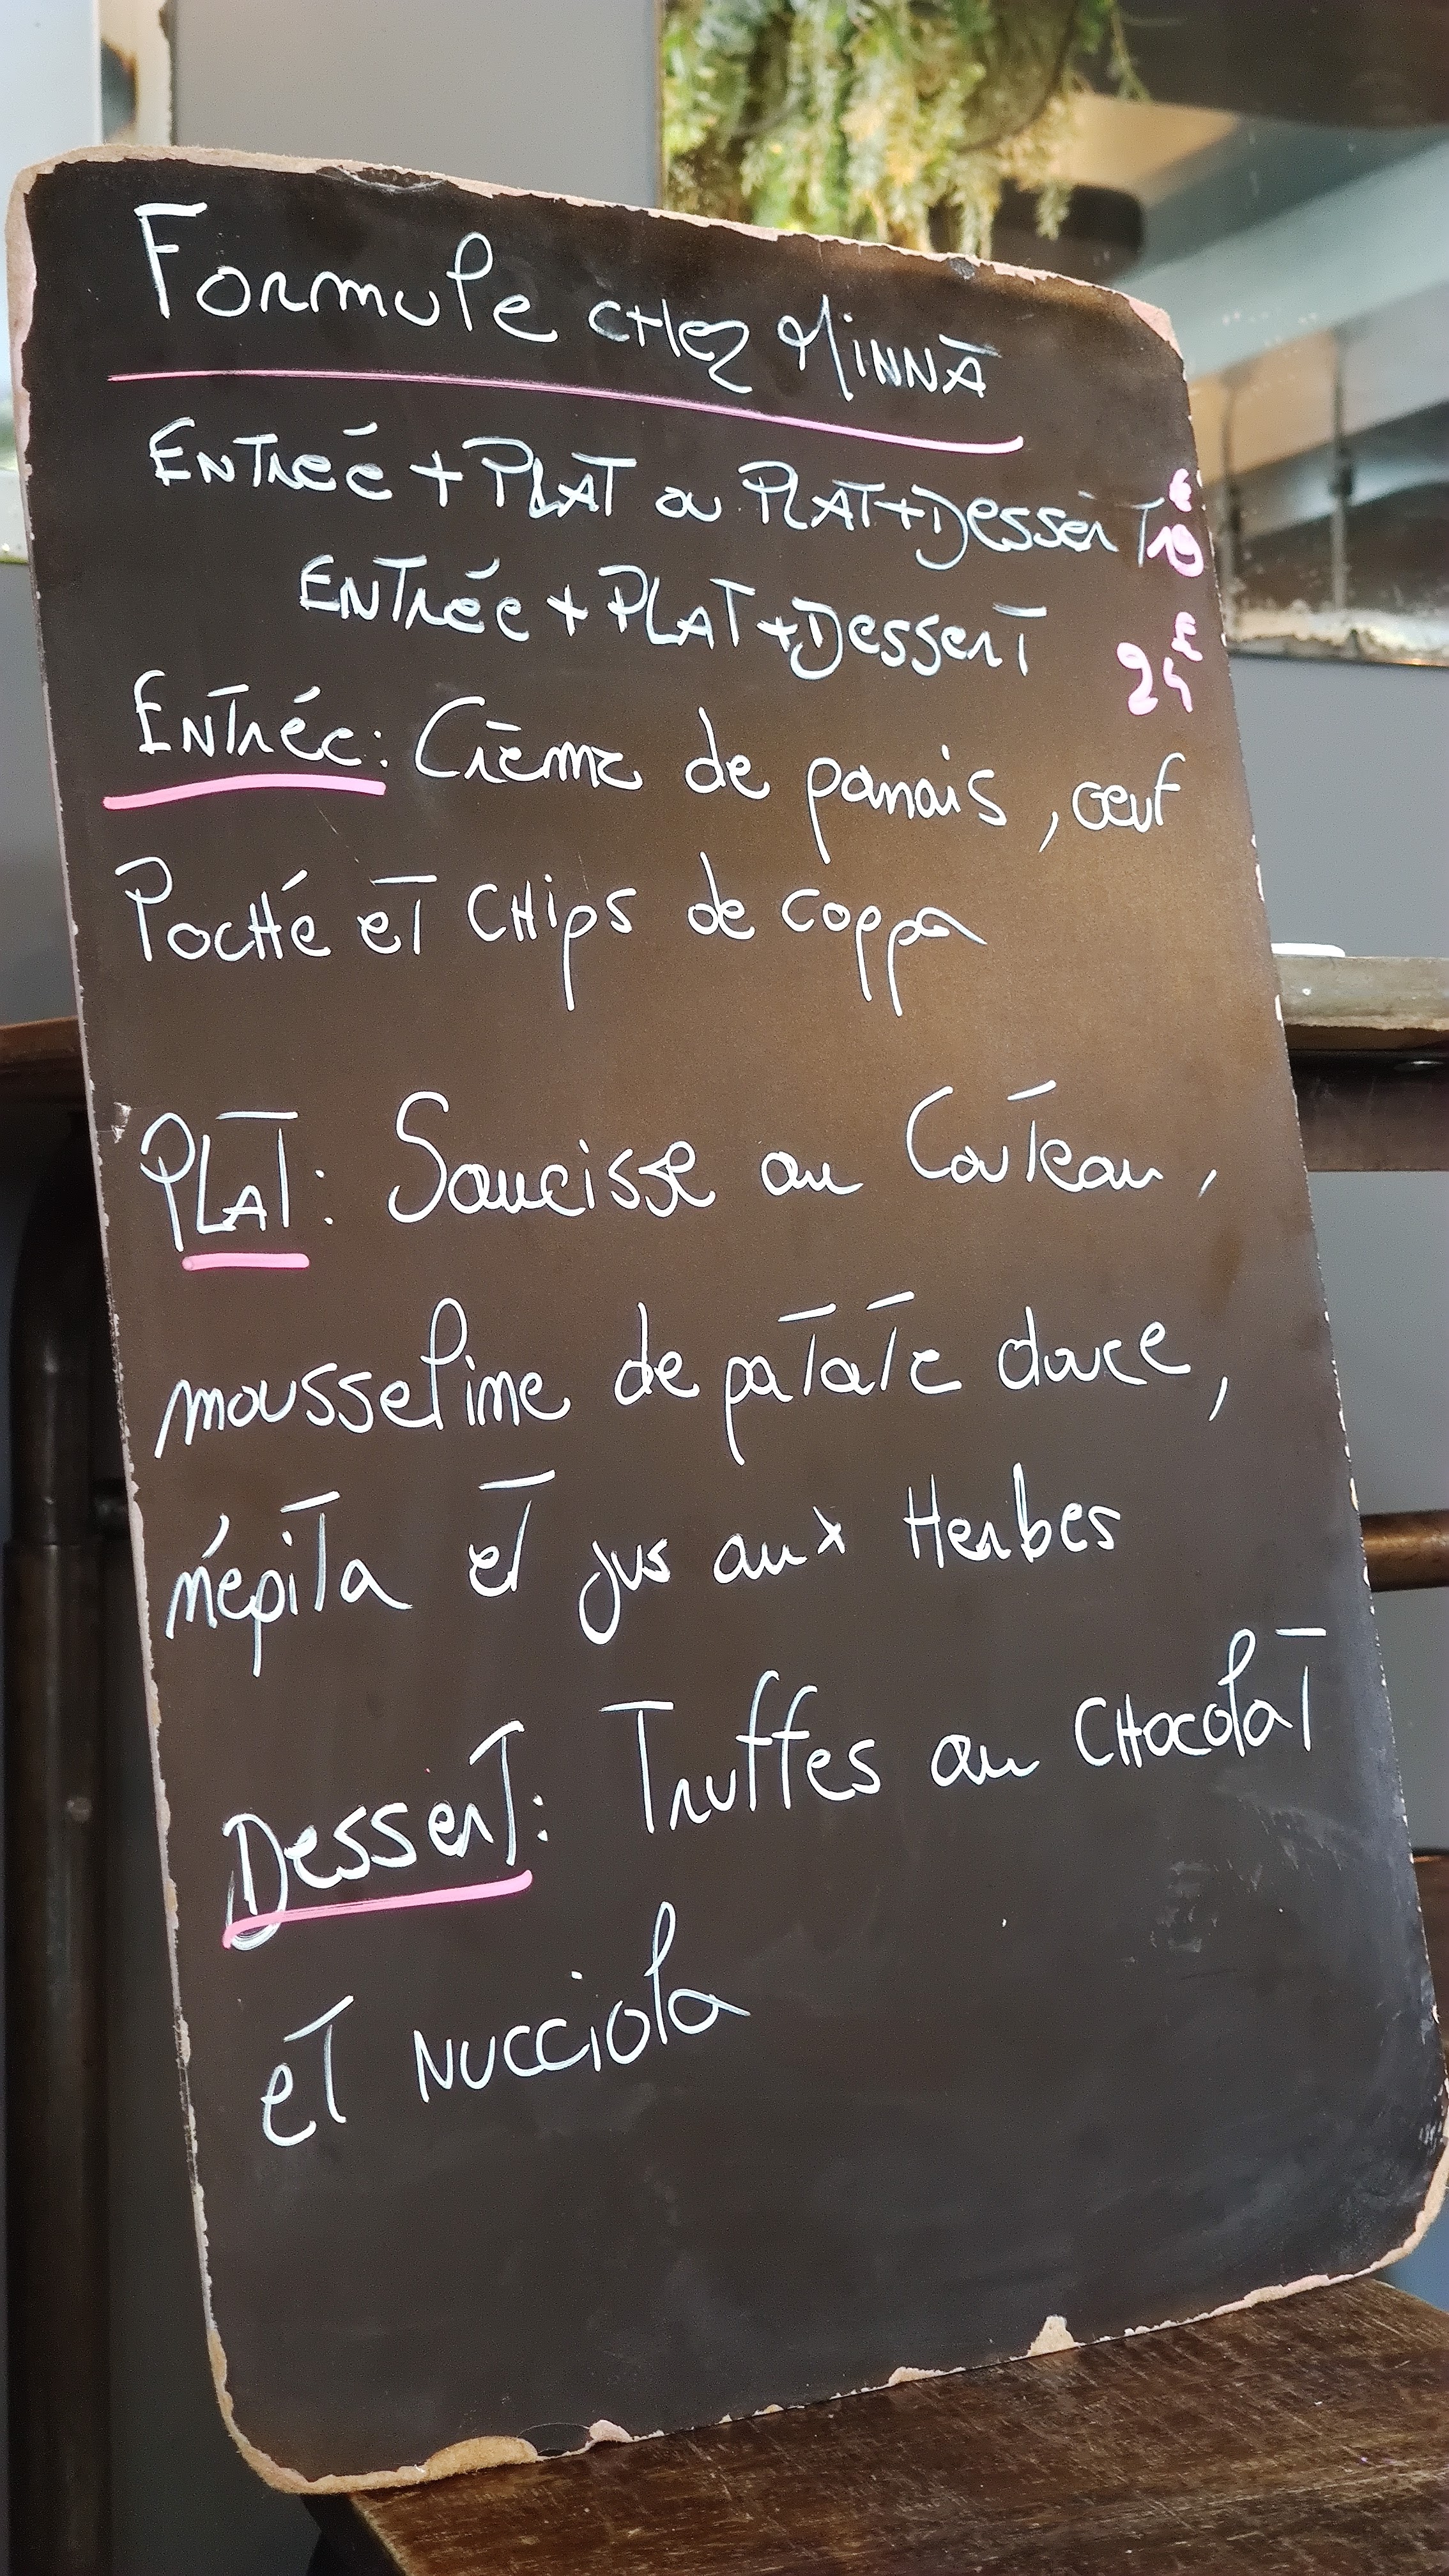 Formule chez Minnà
Entrée + Plat ou Plat + Dessert 19€
Entrée + Plat + Dessert 24€
Entrée: Crème de panais, œuf
Poché et chips de coppa
Plat: Saucisse au Couteau,
mousseline de patate douce,
népita et jus aux Herbes
Dessert: Truffes au chocolat
et nucciola